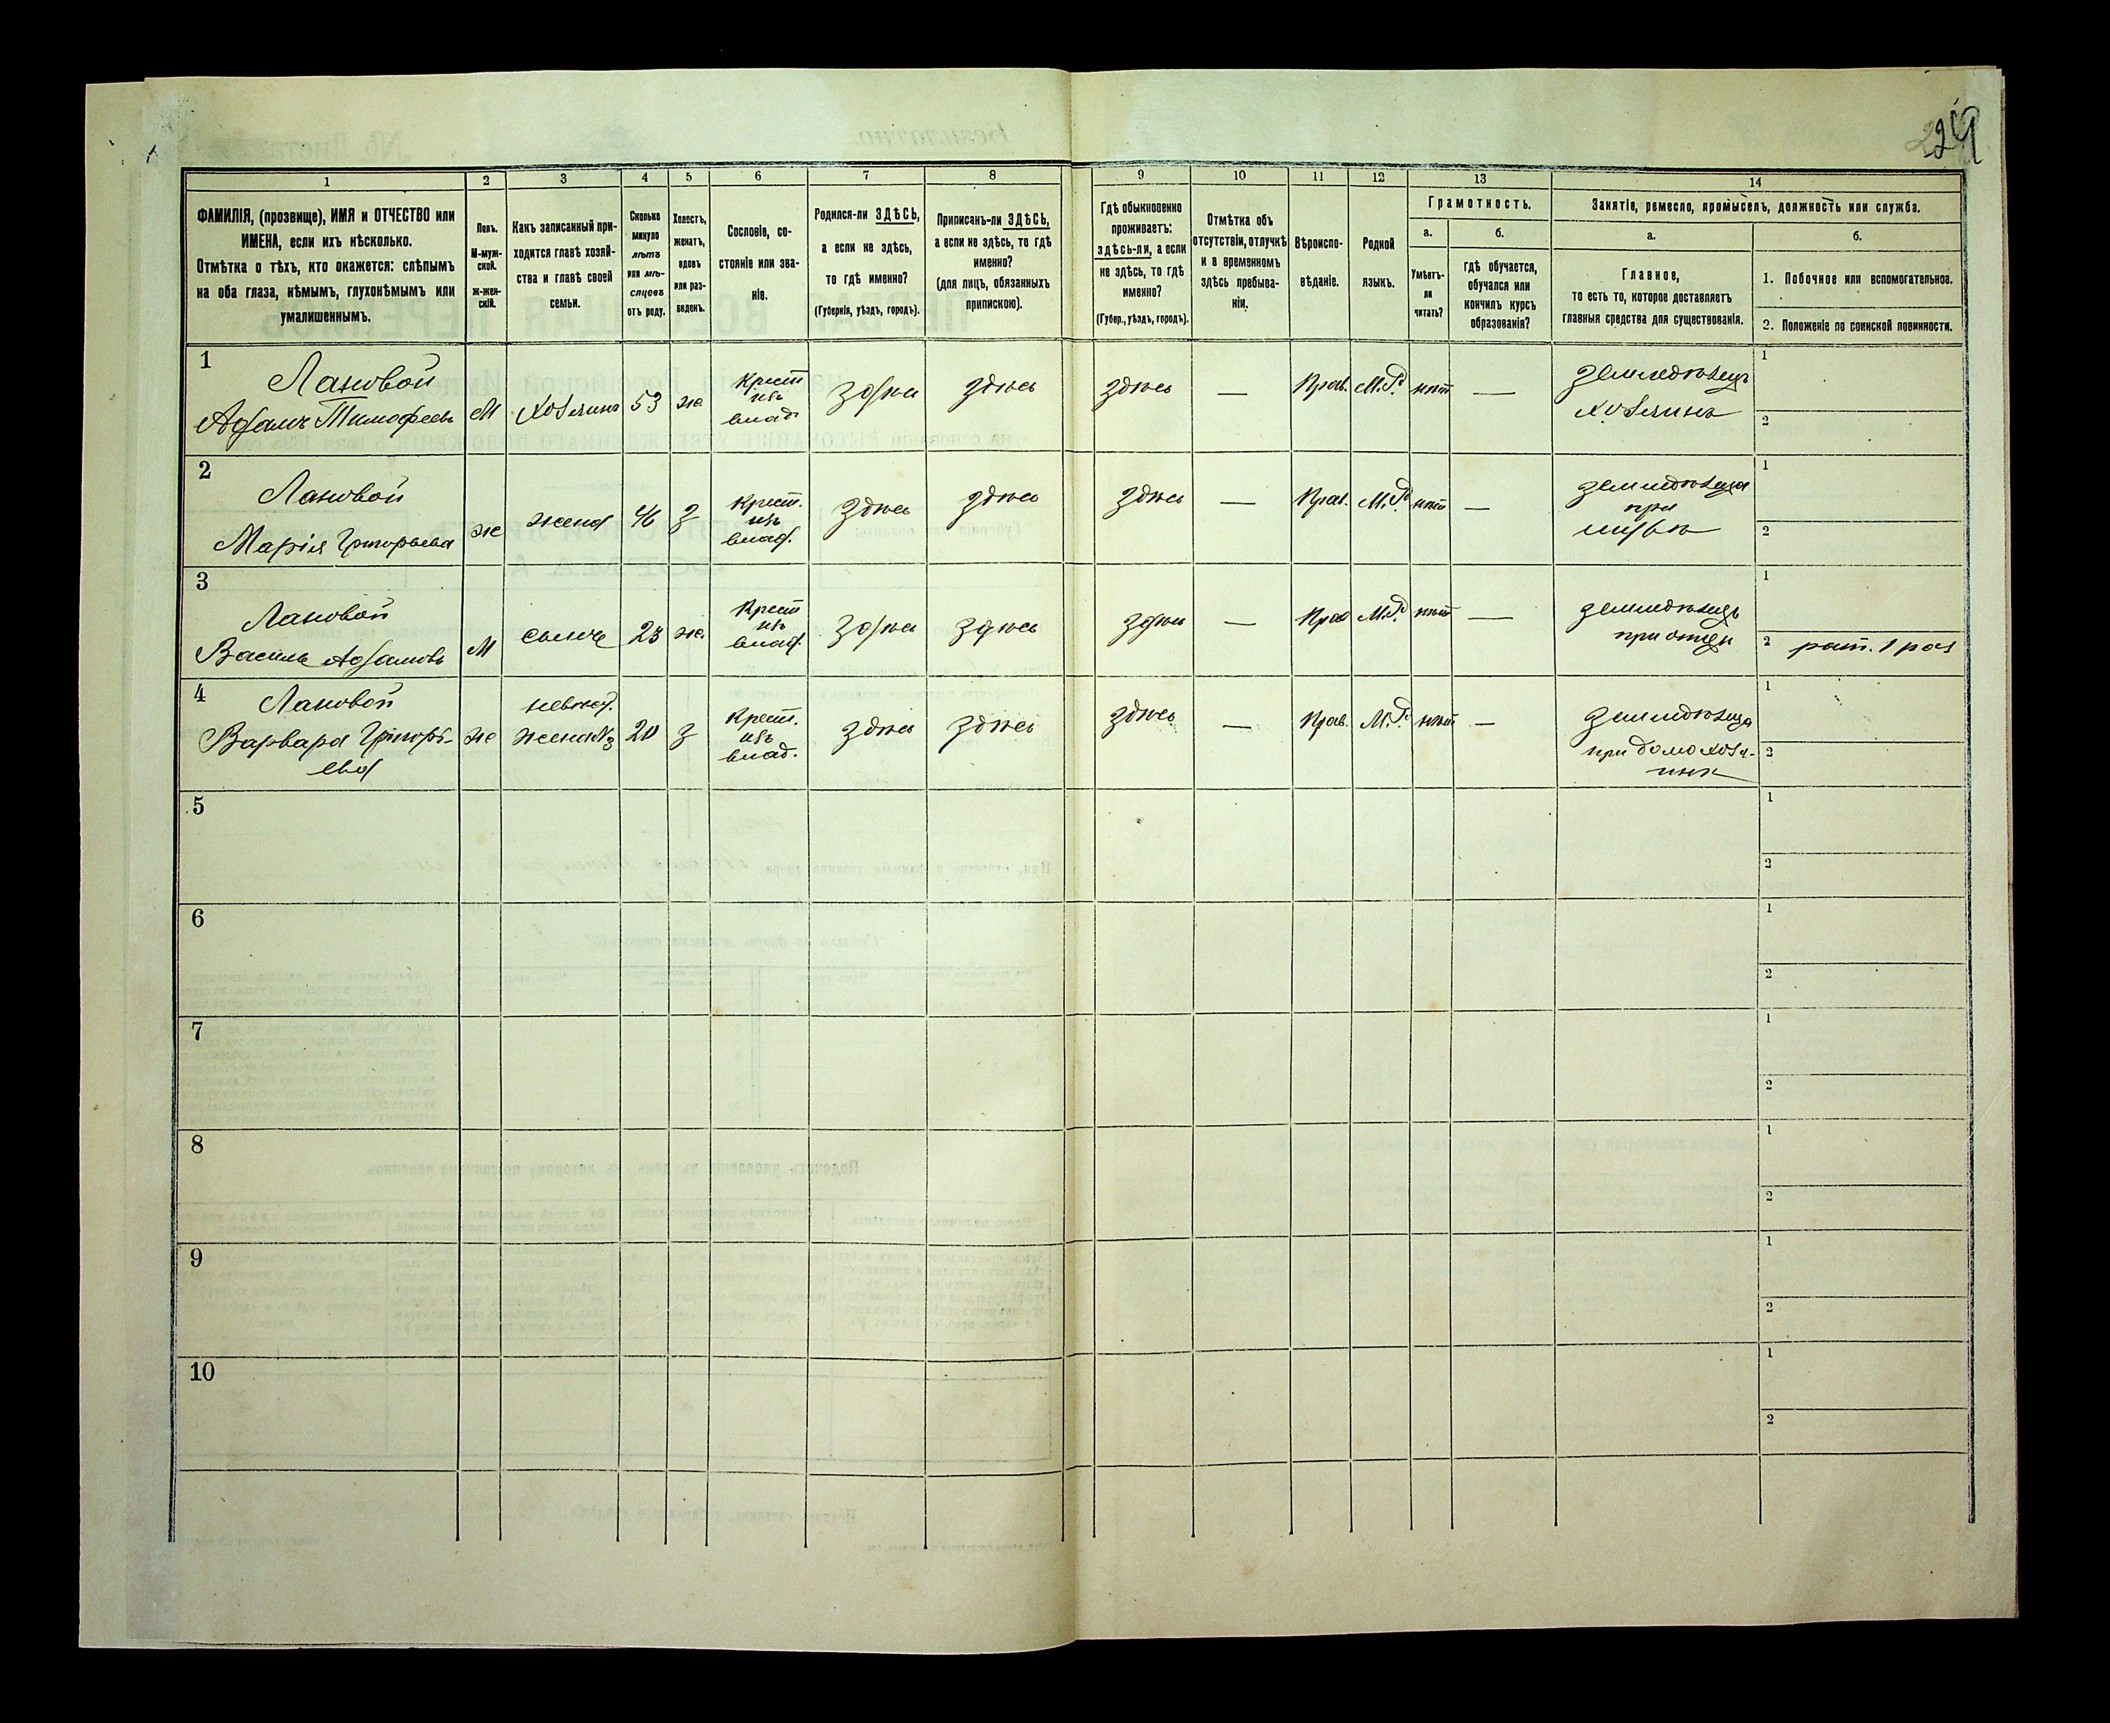 229
1 2 3 4 5 6 7 8 9 10 11 12 13 14
ФАМИЛІЯ, (прозвище), ИМЯ и ОТЧЕСТВО или
ИМЕНА, если ихъ нѣсколько.
Отмѣтка о тѣхъ, кто окажется: слѣпымъ
на оба глаза, нѣмымъ, глухонѣмымъ или
умалишеннымъ.
Полъ.
М-муж-
ской.
Ж-жен-
скій.
Какъ записанный при-
ходится главѣ хозяй-
ства и главѣ своей
семьи.
Сколько
минуло
лѣтъ
или мѣ-
сяцевъ
отъ роду.
Холостъ,
женатъ,
вдовъ
или раз-
веденъ.
Сословіе, со-
стояніе или зва-
ніе.
Родился-ли ЗДѢСЬ,
а если не здѣсь,
то гдѣ именно?
(Губернія, уѣздъ, городъ).
Приписанъ-ли ЗДѢСЬ,
а если не здѣсь, то гдѣ
именно?
(для лицъ, обязанныхъ
припискою).
Гдѣ обыкновенно
проживаетъ:
здѣсь-ли, а если
не здѣсь, то гдѣ
именно?
(Губер., уѣздъ, городъ).
Отмѣтка объ
отсутствіи, отлучкѣ
и о временномъ
здѣсь пребыва-
ніи.
Вѣроиспо-
вѣданіе.
Родной
языкъ.
Грамотность.
а.
Умѣетъ-
ли
читать?
б.
гдѣ обучается,
обучался или
кончилъ курсъ
образованія?
Занятіе, ремесло, промыселъ, должность или служба.
а.
Главное,
то есть то, которое доставляетъ
главныя средства для существованія.
б.
1. Побочное или вспомогательное.
2. Положеніе по воинской повинности.
1
Лановой
Адамъ Тимофеевъ
М
хозяинъ
53
ж
Крест
изъ
влад.
здѣсь
здѣсь
здѣсь
—
Прав.
М.Р.
нѣт
—
земледѣлецъ
хозяинъ
1
2
2
Лановой
Марія Григорьева
ж
жена
46
з
Крест.
изъ
влад.
здѣсь
здѣсь
здѣсь
—
Прав.
М.Р.
нѣт
—
земледѣлица
при
мужѣ
1
2
3
Лановой
Василь Адамовъ
М
сынъ
23
ж.
Крест
изъ
влад.
здѣсь
здѣсь
здѣсь
—
Прав
М.Р.
нѣт
—
земледѣлецъ
при отцѣ
1
2 рат. 1 раз
4
Лановой
Варвара Григорь-
ева
ж
невѣст.
жена №3
20
з
Крест.
изъ
влад.
здѣсь
здѣсь
здѣсь
—
Прав.
М.Р.
нѣт
—
земледѣлица
при домохозя-
инѣ
1
2
5
1
2
6
1
2
7
1
2
8
1
2
9
1
2
10
1
2